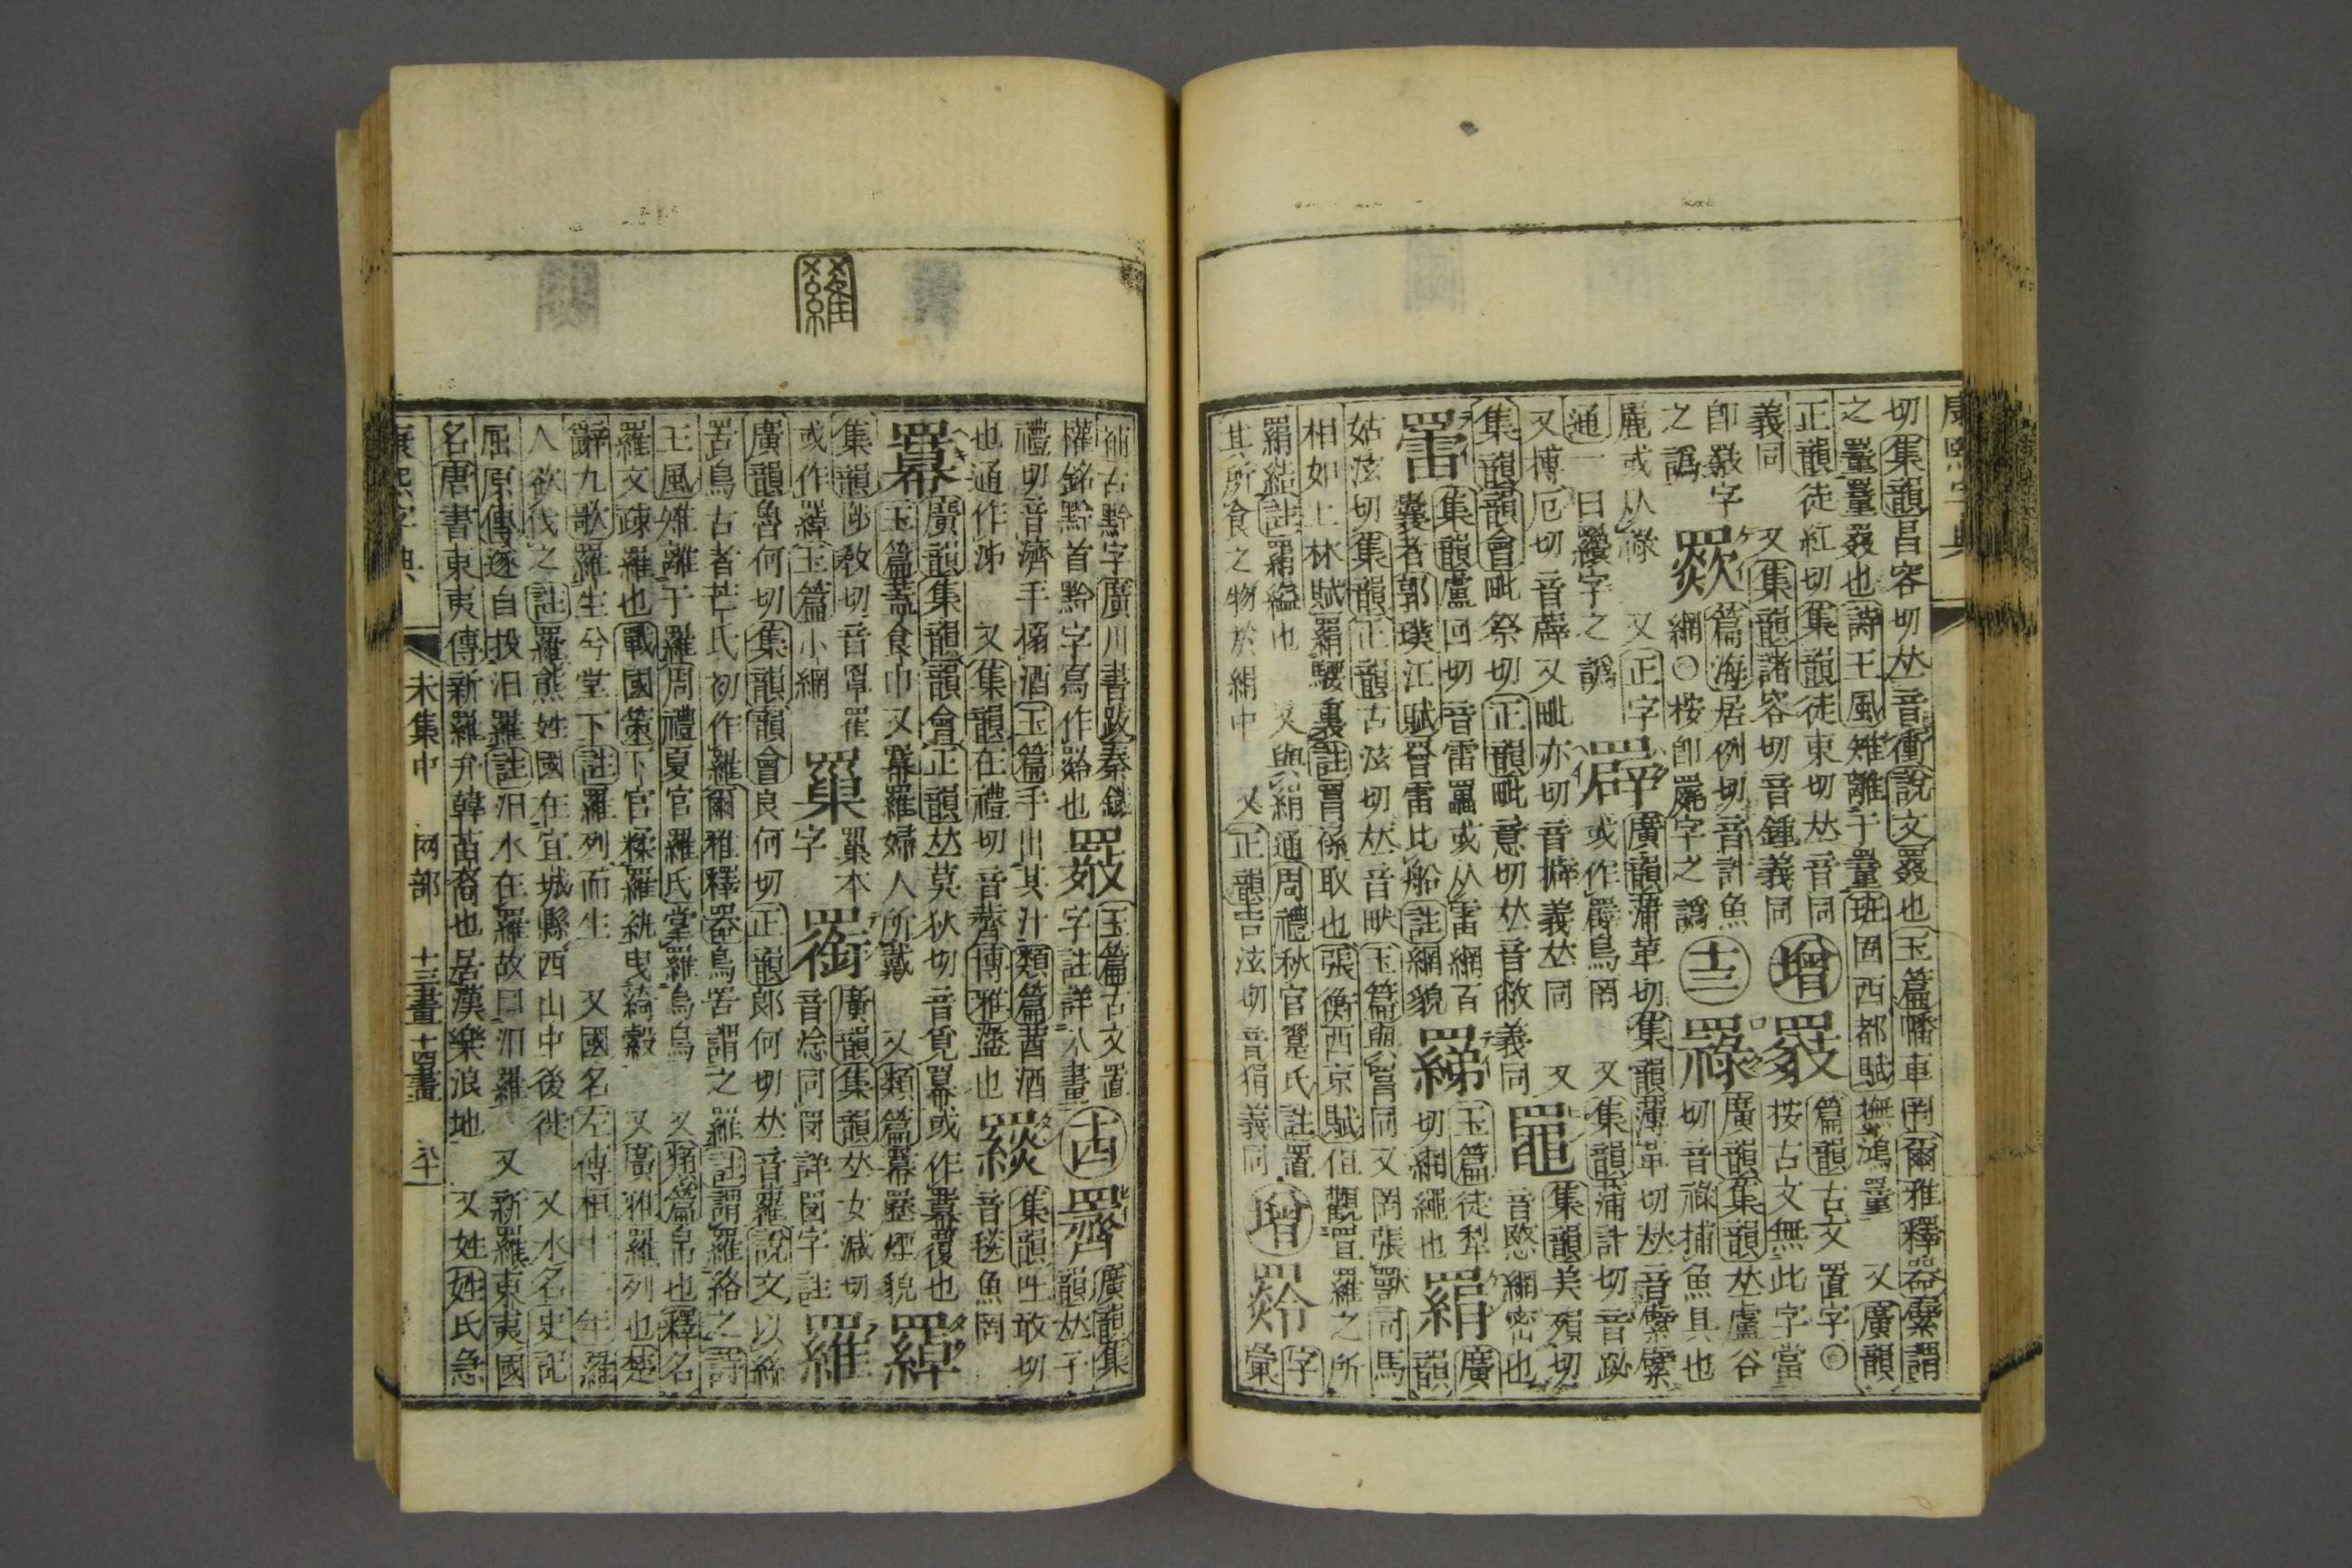 康熙字典
切集韻昌容切𠀤音衝說文罬也玉篇幡車罔爾雅釋器繴謂
之罿罿罬也詩王風雉離于罿班固西都賦撫鴻罿 又廣韻
正韻徒紅切集韻徒東切𠀤音同
義同 又集韻諸容切音鍾義同 增
篇韻古文置字〇
按古文無此字當
即 字
篇海居例切音計魚
網〇按卽罽字之譌
之譌
十三
廣韻集韻𠀤盧谷
切音祿捕魚具也
麗或从祿 又正字
通一曰 字之譌
廣韻蒲革切集韻薄革切𠀤音繴繴
或作 鳥罔 又集韻蒲計切音
又博厄切音薜又毗亦切音擗義𠀤同 又集韻美殞切
集韻韻會毗祭切正韻毗意切𠀤音敝義同
罷
音愍網密也
罍
集韻盧回切音雷 或从雷網百
囊者郭璞江賦罾雷比船註網貌
玉篇徒犁
切網繩也
羂
廣韻
姑泫切集韻正韻古泫切𠀤音畎玉篇與罥同又罔張獸司馬
相如上林賦羂騕褭註罥係取也張衡西京賦但觀罝羅之所
羂結註羂縊也 又與絹通周禮秋官翨氏註置
其所食之物於絹中 又正韻吉泫切音狷義同
增
字彙
補古黔字廣川書跋秦鐵
權銘黔首黔字寫作 也
玉篇古文置
字註詳八畫
十四
廣韻集
韻𠀤子
禮切音濟手搦酒玉篇手出其汁類篇莤酒
也通作泲 又集韻在禮切音薺博雅盪也
集韻吐敢切
音毯魚罔
羃
廣韻集韻韻會正韻𠀤莫狄切音覓冪或作羃覆也
玉篇蓋食巾又羃羅婦人所戴 又類篇羃䍥煙貌
集韻 敎切音罩罹
或作 玉篇小網
罺本
字
廣韻集韻𠀤女減切
音 同罱詳罱字註
羅
羅
廣韻魯何切集韻韻會良何切正韻郞何切𠀤音蘿說文以絲
罟鳥古者芒氏初作羅爾雅釋器鳥罟謂之羅註謂羅絡之詩
王風雉離于羅周禮夏官羅氏掌羅烏鳥 又類篇帛也釋名
羅文疎羅也戰國策下官糅羅紈曳綺縠 又廣雅羅列也楚
辭九歌羅生兮堂下註羅列而生 又國名左傳桓十二年羅
人欲伐之註羅熊姓國在宜城縣西山中後徙 又水名史記
屈原傳遂自投汨羅註汨水在羅故曰汨羅 又新羅東夷國
名唐書東夷傳新羅弁韓苗裔也居漢樂浪地 又姓姓氏急
康熙字典 未集中 网部 十三畫十四畫 六十